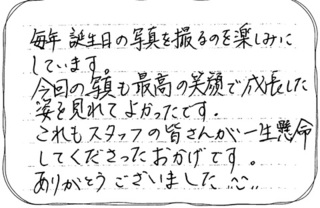 毎年 誕生日の写真を撮るのを楽しみに
しています。
今回の写真も最高の笑顔で成長した
姿を見れてよかったです。
これもスタッフの皆さんが一生懸命
してくださったおかげです。
ありがとうございました